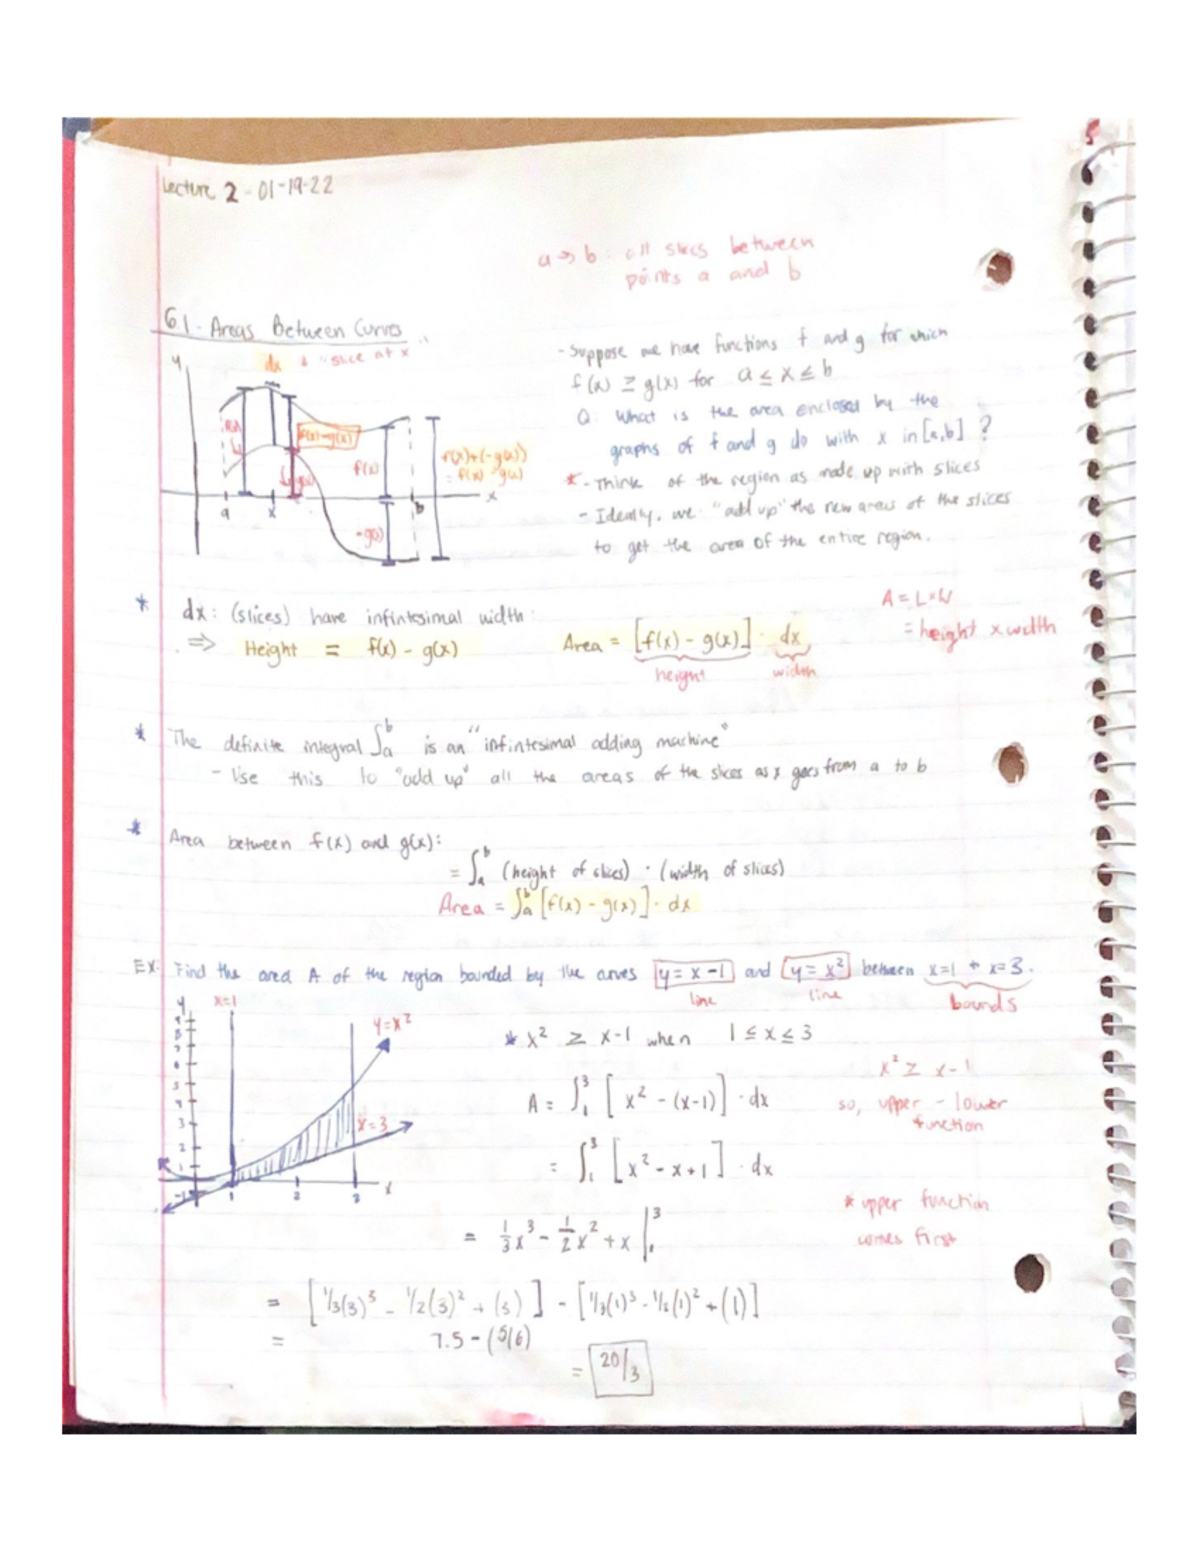 Lecture 2 - 01-19-22
a → b : all slices between
points a and b
6.1 - Areas Between Curves
dx ↓ "slice at x"
y
f(x)-g(x)
g(x)
f(x)
-g(x)
f(x)+(-g(x))
= f(x) - g(x)
a
x
b
x
- Suppose we have functions f and g for which
f(x) ≥ g(x) for a ≤ x ≤ b
Q: What is the area enclosed by the
graphs of f and g do with x in [a,b] ?
* - Think of the region as made up with slices
- Ideally, we "add up" the new areas of the slices
to get the area of the entire region.
* dx: (slices) have infintesimal width:
⇒ Height = f(x) - g(x)
Area = [f(x) - g(x)] · dx
height width
A = L×W
= height x width
* The definite integral ∫ₐᵇ is an "infintesimal adding machine"
- Use this to "add up" all the areas of the slices as x goes from a to b
* Area between f(x) and g(x):
= ∫ₐᵇ (height of slices) · (width of slices)
Area = ∫ₐᵇ [f(x) - g(x)] · dx
EX: Find the area A of the region bounded by the curves y = x - 1 and y = x² between x=1 + x=3.
line line bounds
y x=1
y=x²
x=3
5
4
3
2
1
-1
1 2 3 x
* x² ≥ x-1 when 1 ≤ x ≤ 3
A = ∫₁³ [x² - (x-1)] · dx
= ∫₁³ [x² - x + 1] · dx
= 1/3 x³ - 1/2 x² + x |₁³
x² ≥ x - 1
so, upper - lower
function
* upper function
comes first
= [1/3(3)³ - 1/2(3)² + (3)] - [1/3(1)³ - 1/2(1)² + (1)]
= 7.5 - (5/6)
= 20/3